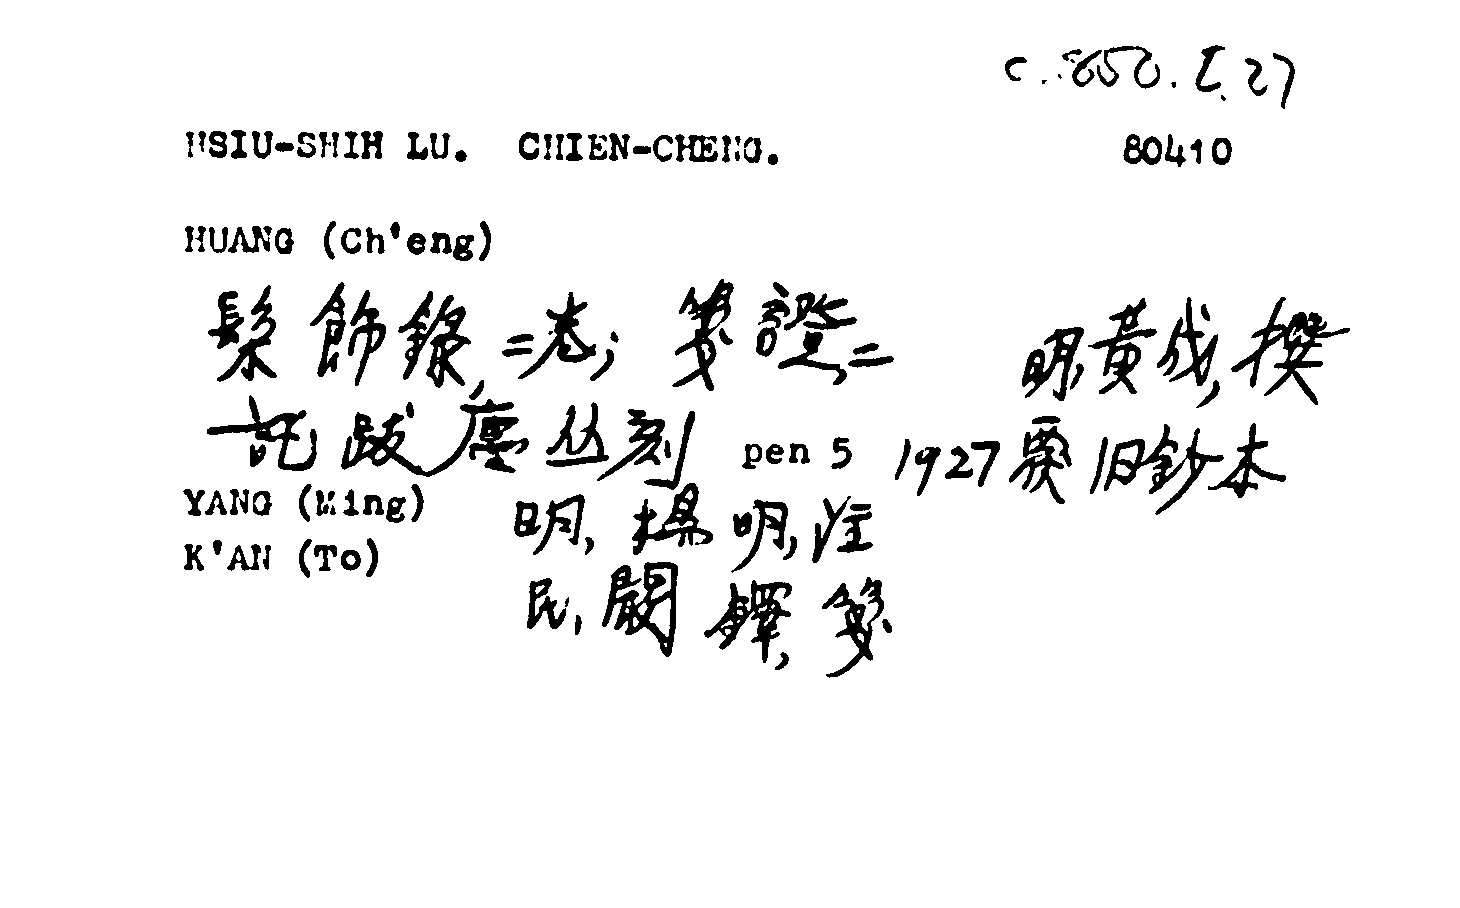 c.850.I.27
HSIU-SHIH LU. CHIEN-CHENG. 80410
HUANG (Ch'eng)
髹飾錄,二卷;箋證,二 明,黃成,撰
託跋廛丛刻 pen 5 1927 覆旧鈔本
YANG (Ming) 明,楊明,注
K'AN (To) 民,闞鐸,箋